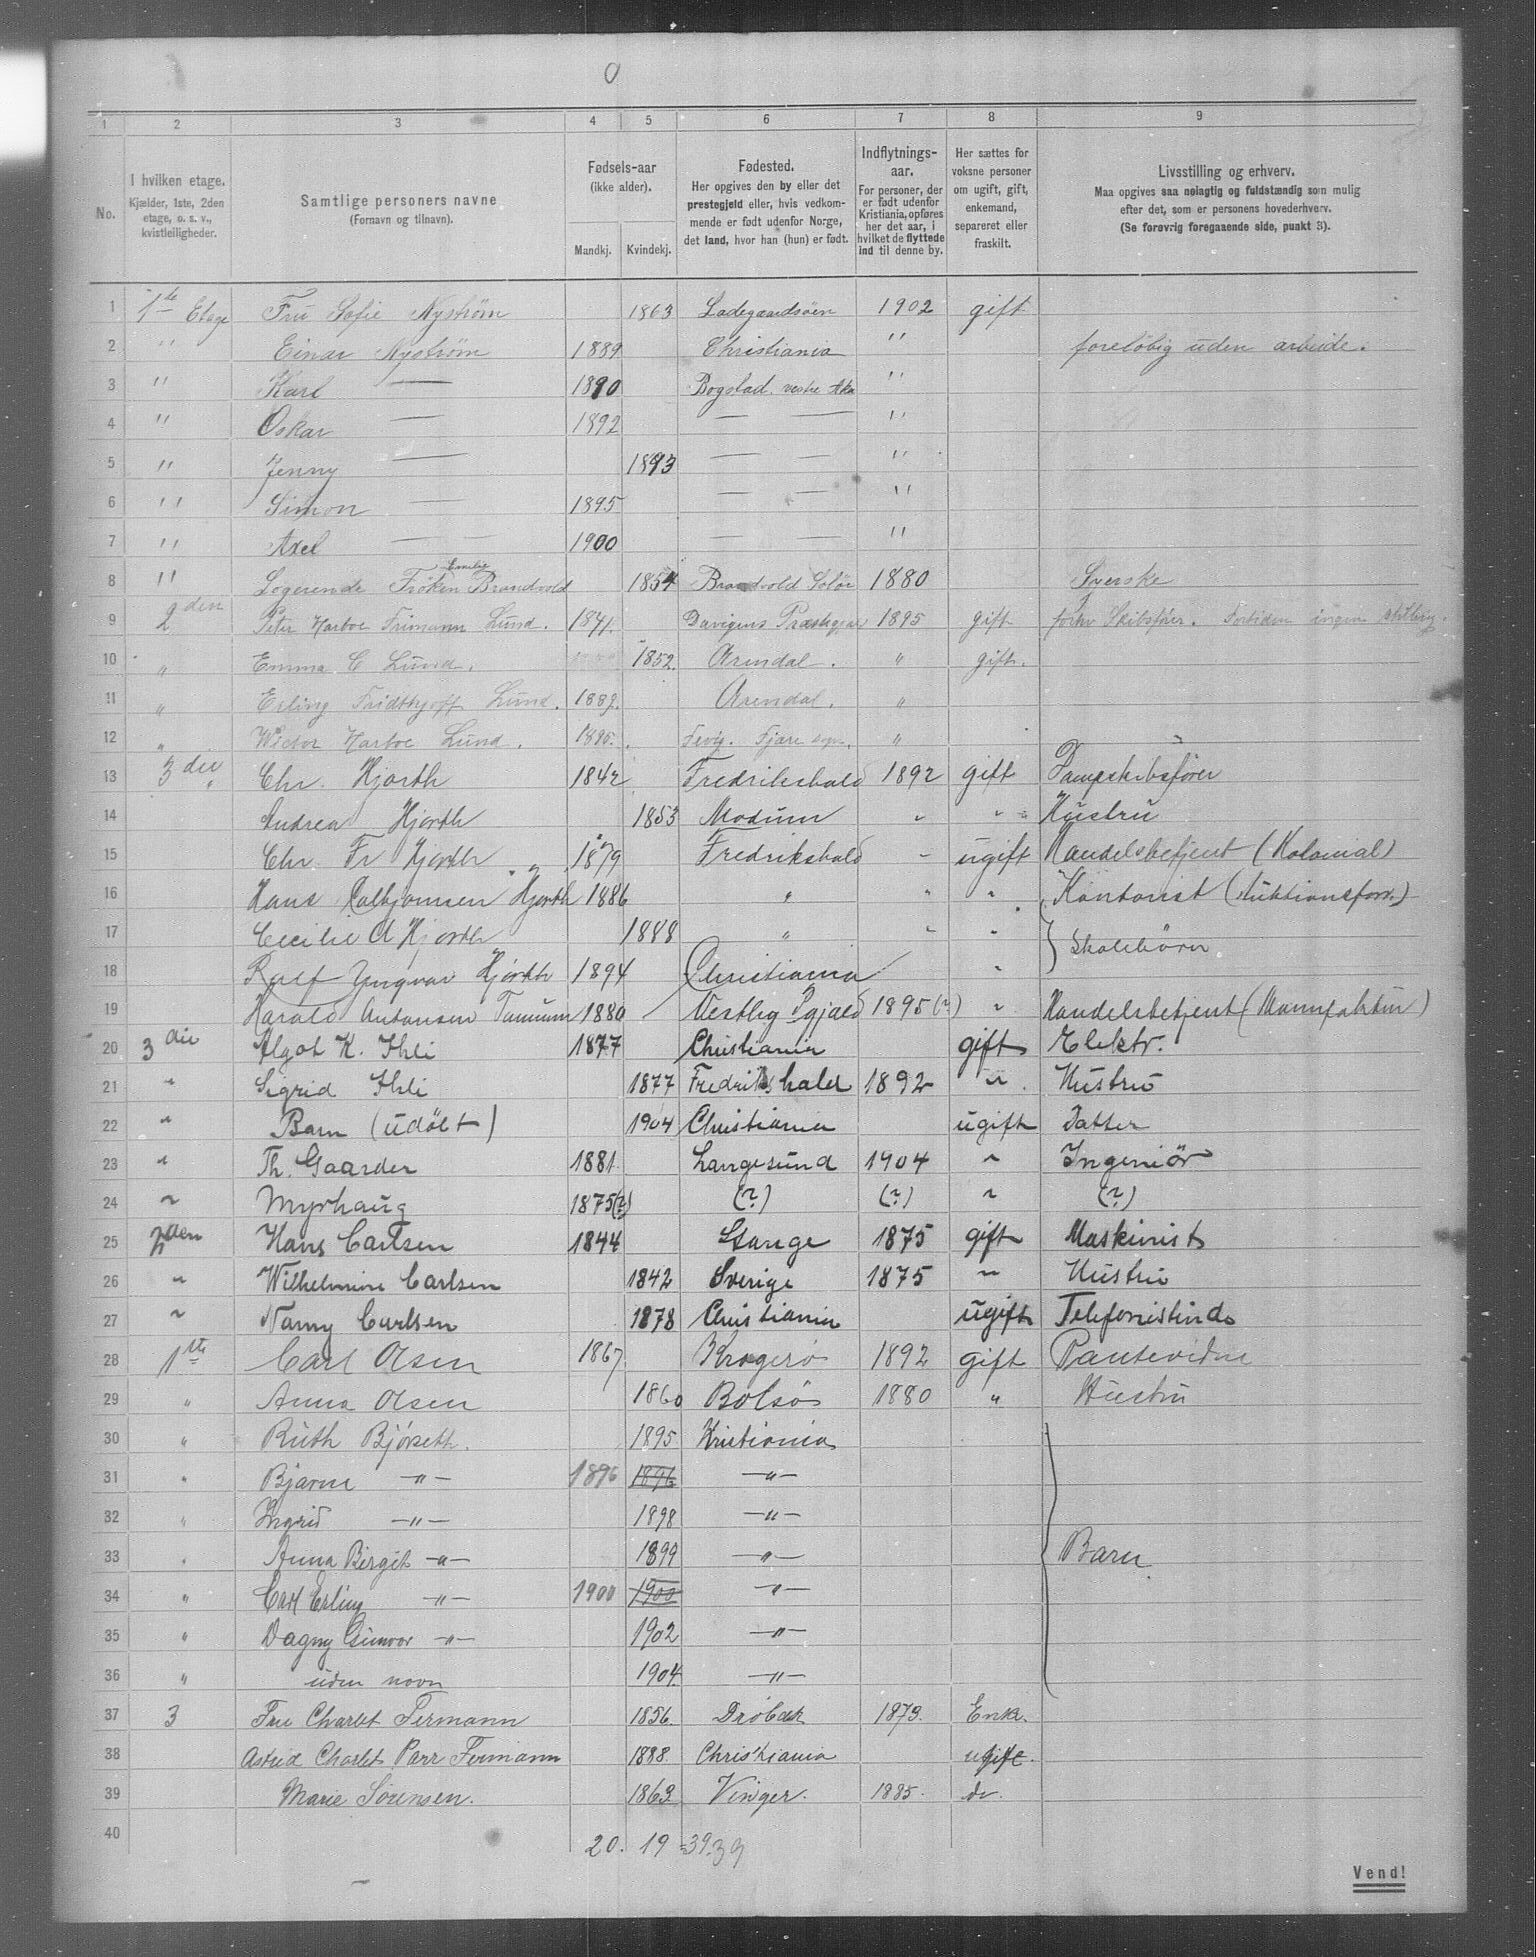 0
1 2 3 4 5 6 7 8 9
No.
I hvilken etage.
Kjælder, 1ste, 2den
etage, o. s. v.,
kvistleiligheder.
Samtlige personers navne
(Fornavn og tilnavn).
Fødsels-aar
(ikke alder).
Mandkj. Kvindekj.
Fødested.
Her opgives den by eller det
prestegjeld eller, hvis vedkom-
mende er født udenfor Norge,
det land, hvor han (hun) er født.
Indflytnings-
aar.
For personer, der
er født udenfor
Kristiania, opføres
her det aar, i
hvilket de flyttede
ind til denne by.
Her sættes for
voksne personer
om ugift, gift,
enkemand,
separeret eller
fraskilt.
Livsstilling og erhverv.
Maa opgives saa nøiagtig og fuldstændig som mulig
efter det, som er personens hovederhverv.
(Se forøvrig foregaaende side, punkt 3).
1 1ste Etage Fru Sofie Nyström 1863 Ladegaardsöen 1902 gift
2 " Einar Nyström 1889 Christiania " foreløbig uden arbeide.
3 " Karl — 1890 Bogstad. vestre Aker "
4 " Oskar — 1892 — — "
5 " Jenny — 1893 — — "
6 " Simon — 1895 — — "
7 " Axel — — 1900 — — "
8 " Logerende Fröken Emilie Brandvold 1854 Brandvold Solör 1880 Syerske
9 2den Peter Harboe Frimann Lund. 1841. 1895 gift forhv Skibsfører. Fortiden ingen stilling.
10 " Emma C Lund. 1852. Arendal. " gift.
11 " Erling Fridthjoff Lund. 1889. Arendal. "
12 " Wictor Harboe Lund. 1895. Fevig. Fjære sogn. "
13 3die " Chr. Hjorth 1842 Fredrikshald 1892 gift Dampskibsfører
14 Andrea Hjorth 1853 Modum " " Hustru
15 Chr. Fr Hjorth 1879 Fredrikshald " ugift Handelsbetjent (Kolonial)
16 Hans Hjorth 1886 " " " Kontorist (Auktionsforr.)
17 Cecilie A Hjorth 1888 " " " } Skolebörn
18 Rolf Yngvar Hjorth 1894 Christiania "
19 Harald Antonsen Tanum 1880 Vestby Pgjæld 1895 (?) " Handelsbetjent (Mannfaktur)
20 3die Algot K. Ihli 1877 Christiania gift Elektr.
21 " Sigrid Ihli 1877 Fredrikshald 1892 " Hustru
22 " Barn (udöbt) 1904 Christiania ugift Datter
23 " Th. Gaarder 1881. Langesund 1904 " Ingeniör
24 " Myrhaug 1875(?) (?) (?) " (?)
25 2den Hans Carlsen 1844 Stange 1875 gift Maskinist
26 " Wilhelmine Carlsen 1842 Sverige 1875 " Hustru
27 " Nanny Carlsen 1878 Christiania ugift Telefonistinde
28 1ste Carl Olsen 1867 Kragerø 1892 gift
29 " Anna Olsen 1860 Bolsø 1880 " Hustru
30 " Ruth Bjørseth. 1895 Kristiania
31 " Bjarne —"— 1896 1896 —"—
32 " Ingrid —"— 1898 —"—
33 " Anna Birgit —"— 1899 —"— Barn
34 " Carl Erling —"— 1900 1900 —"—
35 " Dagny Gunvor —"— 1902 —"—
36 " uden navn 1904. —"—
37 3 Fru Charlot Fermann 1856. Drøbak 1879. Enke.
38 Astrid Charlot Parr Fermann 1888. Christiania ugift.
39 Marie Sörensen. 1863 Vinger. 1885. do.
40
20. 19 =39.39
Vend!